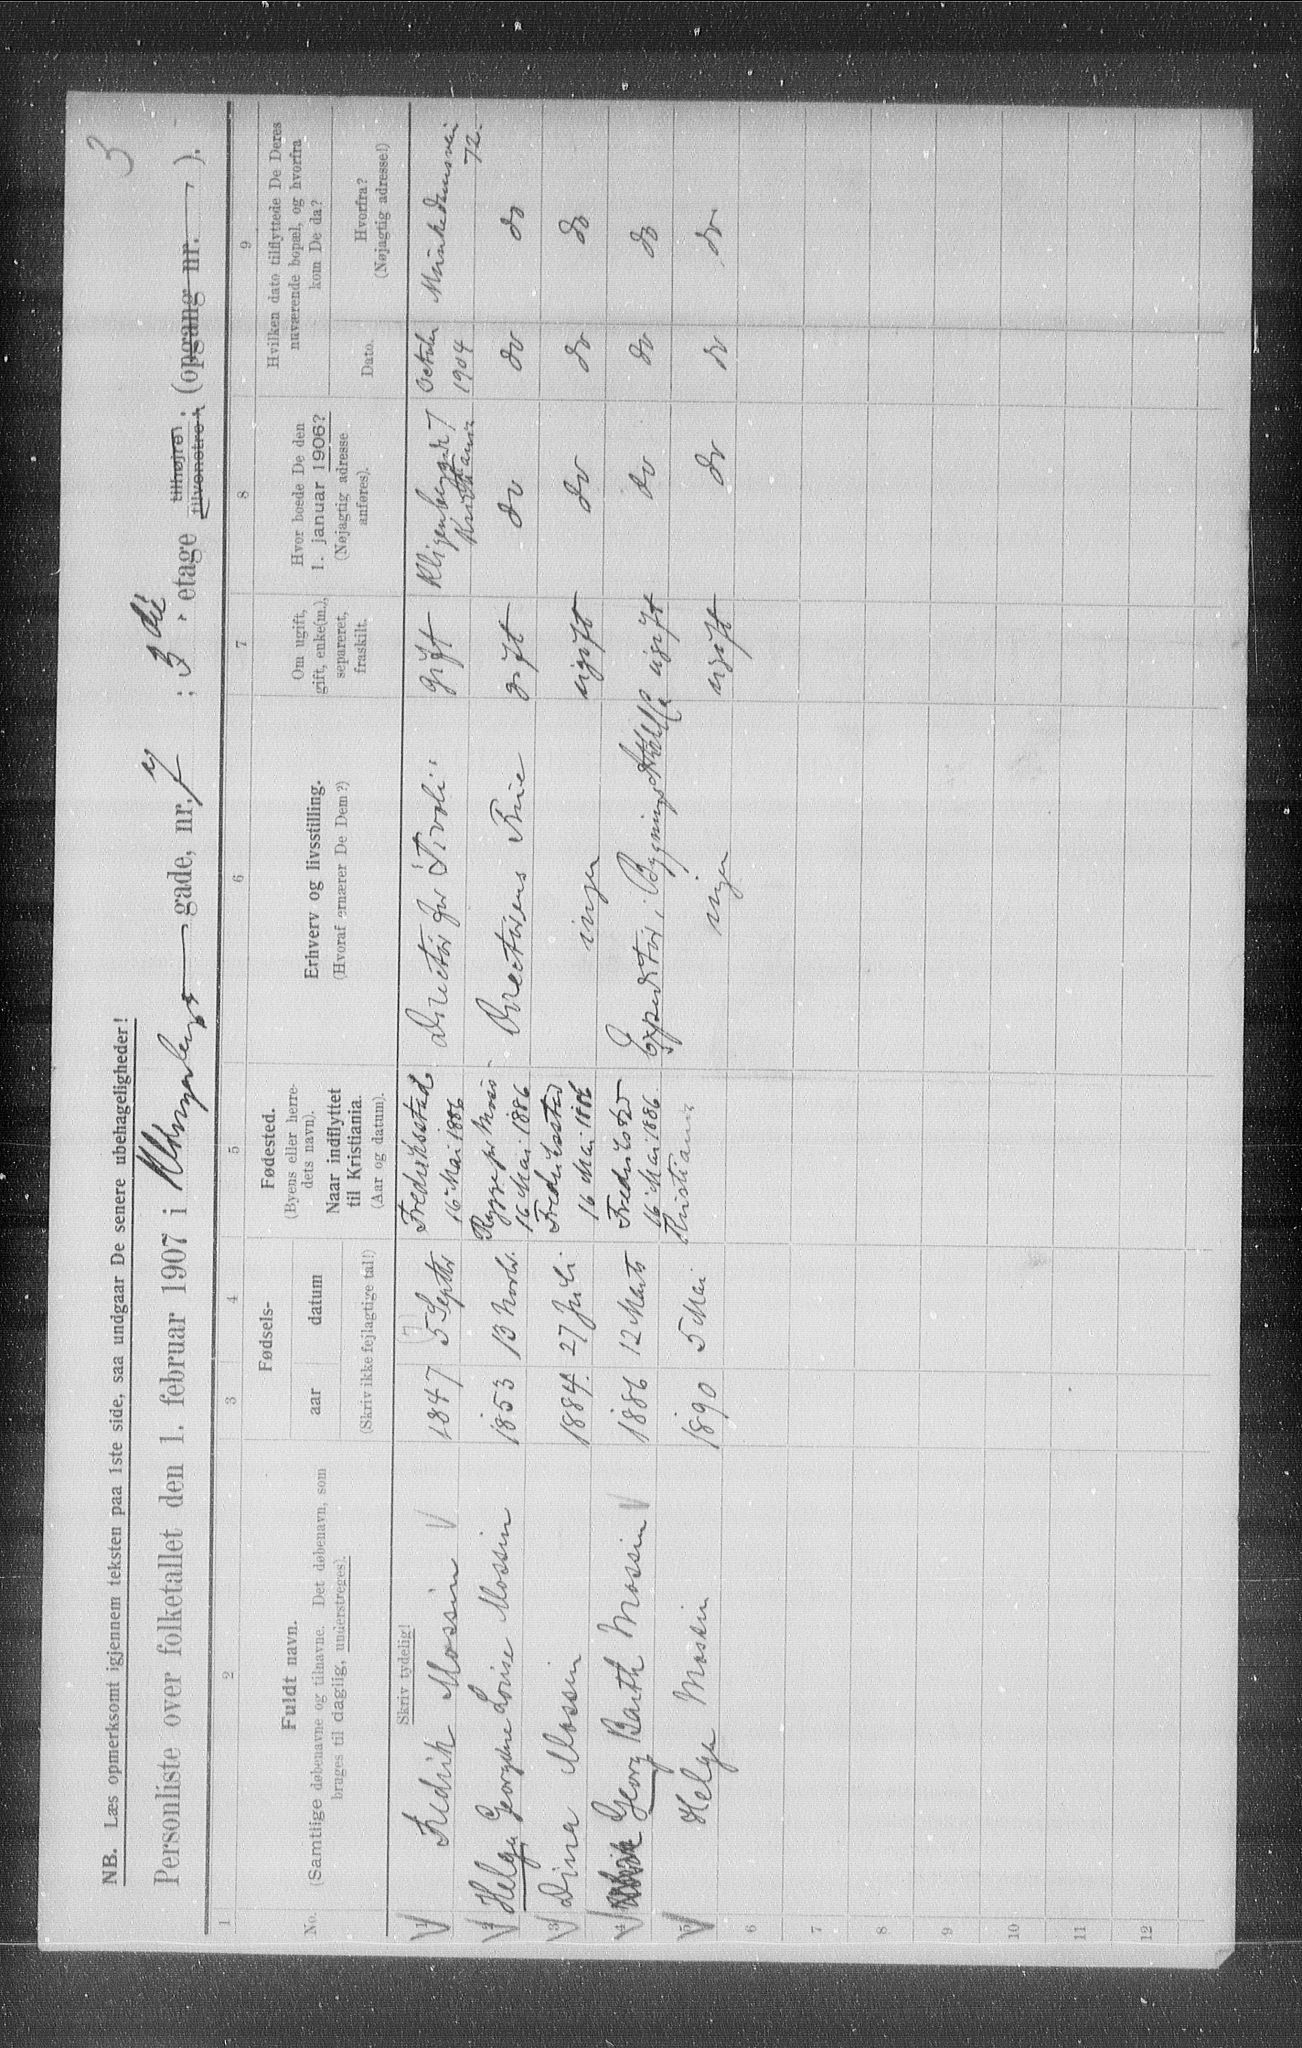 3
NB. Læs opmerksomt igjennem teksten paa 1ste side, saa undgaar De senere ubehageligheder!
Personliste over folketallet den 1. februar 1907 i Klingenberg gade, nr. 7 ; 3 die etage tilhøjre tilvenstre ; (opgang nr. ).
1 2 3 4 5 6 7 8 9
No.
Fuldt navn.
(Samtlige døbenavne og tilnavne. Det døbenavn, som
bruges til daglig, understreges).
Fødsels-
aar datum
(Skriv ikke fejlagtige tal!)
Fødested.
(Byens eller herre-
dets navn).
Naar indflyttet
til Kristiania.
(Aar og datum).
Erhverv og livsstilling.
(Hvoraf ernærer De Dem?)
Om ugift,
gift, enke(m.),
separeret,
fraskilt.
Hvor boede De den
1. januar 1906?
(Nøjagtig adresse
anføres).
Hvilken dato tilflyttede De Deres
nuværende bopæl, og hvorfra
kom De da?
Dato.
Hvorfra?
(Nøjagtig adresse!)
Skriv tydelig!
1 Fredrik Mossin 1847 5 Septbr Fredriksstad 16 Mai 1886 Director for Tivoli gift Klingenberggd 7 Kristiania October 1904 Munkedamsvei 72.
2 Helga Georgine Louise Mossin 1853 13 Novbr. Rygge pr Moss 16 Mai 1886 Directørens Frue gift do do do
3 Dina Mossin 1884. 27 Juli Fredriksstad 16 Mai 1886 ingen ugift do do do
4 Georg Barth Mossin 1886 12 Marts Fredriksstad 16 Mai 1886 Expeditør i Bygnings ugift do do do
5 Helge Mossin 1890 5 Mai Kristiania ingen ugift do do do
6
7
8
9
10
11
12